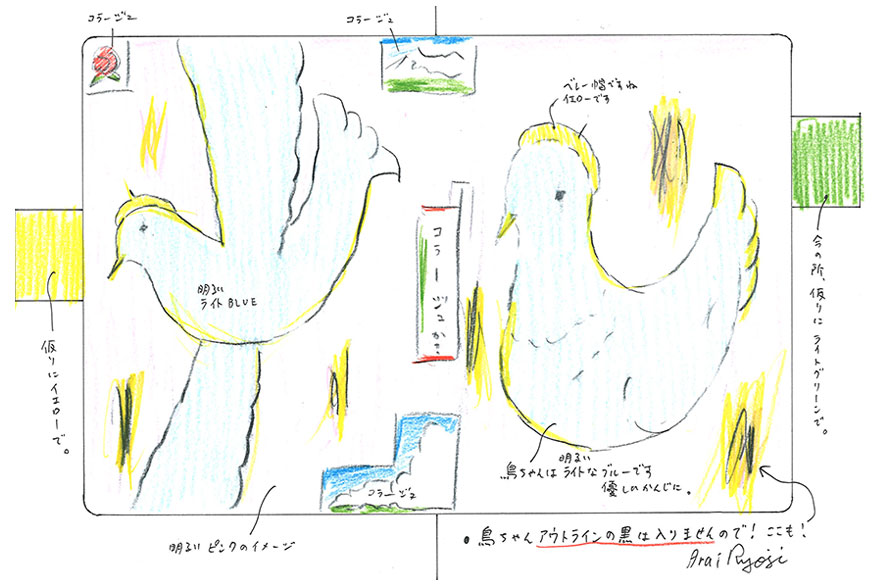 コラージュ
コラージュ
ベレー帽ですね
イエローです
明るい
ライトBLUE
コラージュか?
今の所、仮りにライトグリーンで。
仮りにイエローで。
コラージュ
明るい
鳥ちゃんはライトなブルーです
優しいかんじに。
明るいピンクのイメージ
• 鳥ちゃんアウトラインの黒は入りませんので! ここも!
Arai Ryoji